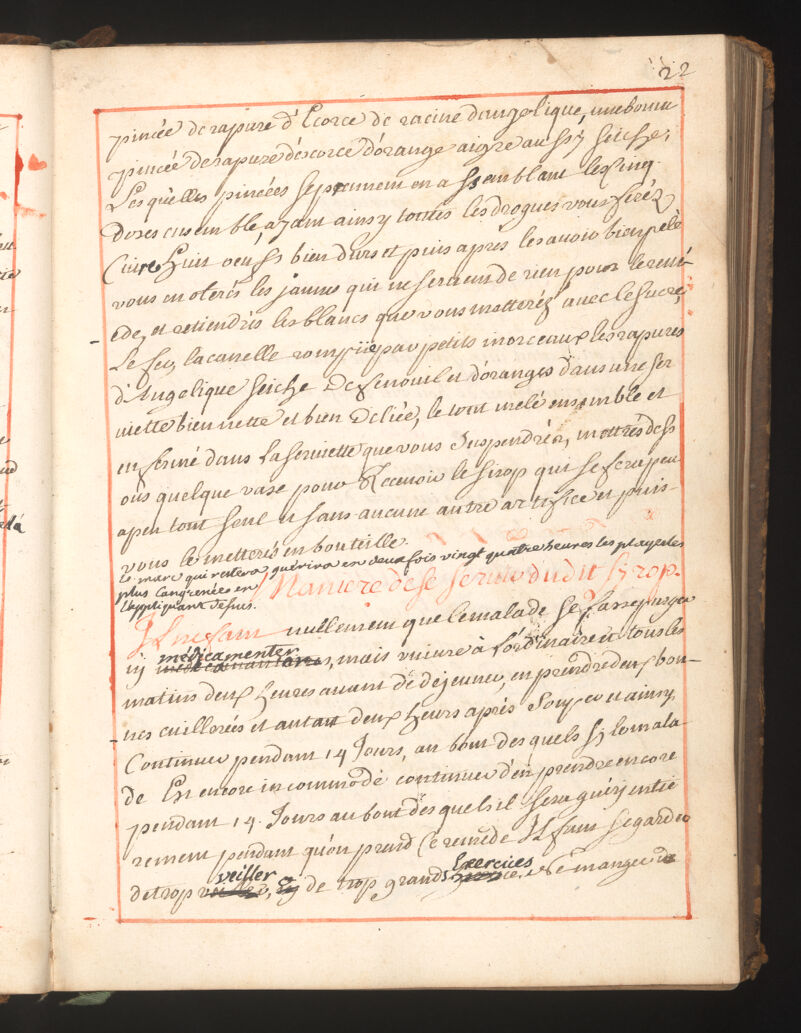 22
pincée de rapure d'Ecorce de racine dangelique, une bonne
pincée de rapure descorce dorange aigre aussy seiche,
Lesquelles pincées se prennent en assemblant les cinq
Doses ensemble ayant ainsy touttes les drogues vous ferés
Cuire huit oeufs bien durs et puis apres les avoir bien pelé
vous en oterés les jaunes qui ne serviront de rien pour le remé-
ede, et retiendrés les blancs que vous metterés avec le sucre,
Le fer, la canelle rompüe par petits morceaux les rapures
d'Angelique seiche De fenouil et d'oranges dans une ser
viette bien nette et bien Deliée, le tout mélé ensemble et
enfermé dans La serviette que vous Suspendrés, mettrés dess
ous quelque vase pour Recevoir le sirop qui se fera peu
apeu tout seul et sans aucune autre artifice et puis
vous le metterés en bouteille.
Le marc qui restera guérira en deux fois vingt quatre heures les playes les
plus Cangrenées en
l'appliquant dessus.
Maniere de se servir dudit syrop.
Il ne faut nullement que le malade se fasse purger
ny médicamenter, mais vivre à l'ordinaire et tous les
matins deux heures avant de dejeuner, en prendre deux bon-
nes cuillorées et autant deux heurs après Souper et ainsy
Continuer pendant 14 Jours, au bout des quels sy le mala-
de Est encore incommodé continuer d'en prendre encore
pendant 14. Jours au bout des quels il sera guéry entie
rement pendant qu'on prend Ce remède Il faut se garder
de trop veiller, de trop grands Exercices, de manger